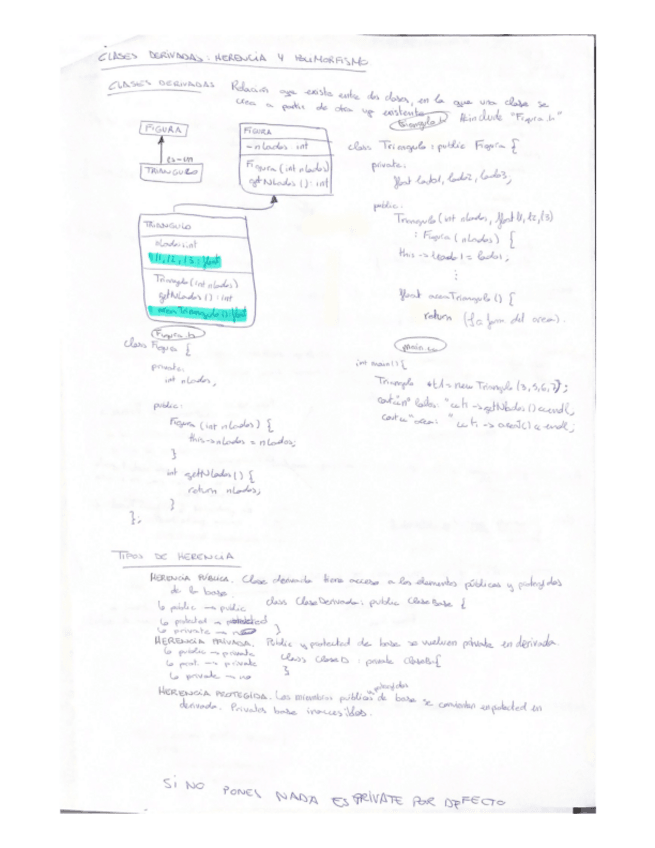 CLASES DERIVADAS: HERENCIA Y POLIMORFISMO
CLASES DERIVADAS Relación que existe entre dos clases, en la que una clase se
crea a partir de otra ya existente.
Triangulo.h #include "Figura.h"
FIGURA
es-un
TRIANGULO
FIGURA
- nlados: int
Figura (int nlados)
getNlados(): int
TRIANGULO
nlados: int
l1, l2, l3: float
Triangulo (int nlados)
getNlados(): int
areaTriangulo(): float
class Triangulo: public Figura {
private:
float lado1, lado2, lado3;
public:
Triangulo (int nlados, float l1, l2, l3)
: Figura (nlados) {
this->lado1 = lado1;
⋮
float areaTriangulo () {
return (del area).
Figura.h
class Figura {
private:
int nlados;
public:
Figura (int nlados) {
this->nlados = nlados;
}
int getNlados () {
return nlados;
}
};
main.cc
int main () {
Triangulo *t1 = new Triangulo (3,5,6,7);
cout << "nº lados: " << t1->getNlados () << endl;
cout << "area: " << t1-> area() << endl;
TIPOS DE HERENCIA
HERENCIA PÚBLICA. Clase derivada tiene acceso a los elementos públicos y protegidos
de la base.
class ClaseDerivada: public ClaseBase {
}
public → public
protected → protected
private → no
HERENCIA PRIVADA. Public y protected de base se vuelven private en derivada.
class ClaseD: private ClaseB {
}
public → private
prot. → private
private → no
HERENCIA PROTEGIDA. Los miembros públicos y protegidos de base se convierten en protected en
derivada. Privados base inaccesibles.
SI NO PONEL NADA ES PRIVATE POR DEFECTO